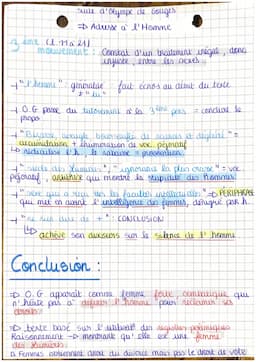 suite d'Olympe de Gouges
⇒ Adresse à l'Homme
3 ème (l. 17 à 21)
mouvement : Constat d'un traitement inégal, donc
injuste, entre les sexes.
→ "l'homme" généralité fait échos au début du texte
≠ "tu"
→ O.G passe du tutoiement à la 3ème pers = conclure le
propos
→ "Bizarre, aveugle, boursouflé de sciences et dégénéré" =
accumulation + énumération de voc. péjoratif
↳ ridiculise l'h, le rabaisse = provocation.
→ "siècle des lumières", "ignorance la plus crasse" = voc
péjoratif, qui montre la stupidité des hommes
→ "sexe qui a reçu des les facultés intellectuelles" ⇒ PÉRIPHRASE
qui met en avant l'intelligence des femmes, par h.
→ "ne rien dire de +" : CONCLUSION
↳ achève son discours sur le silence de l'homme
Conclusion :
⇒ O.G apparaît comme femme forte, combatique qui
n'hésite pas à défier l'homme pour réclamer ses
droits.
⇒ texte basé sur l'utilisat° des registres polémiques
Raisonnement → montrant qu'elle est une femme
des lumières.
Femmes obtiennent droit au divorce mais pas le droit de vote